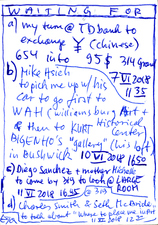 WAITING FOR
a) my turn @ TD bank to
exchange ¥ (chinese)
654 into 95$ 314 Grand
b) Mike Hsich 7 VI 2018
to pick me up w/his 1135
car to go first to
WAH (williamsburg Art +
& then to KURT Historical
BIGENHO's "gallery" (his loft) Center
in Bushwick) 10 VI 2018 1650
c) Diego Sanchez + mother Michelle
to come by 319 to look @ LARGE
11 VI 2018 1645 @ 303 ROOM
d) Charles Smith & Seth McBride
to talk about "where to place me in Pit
11 VI 2018